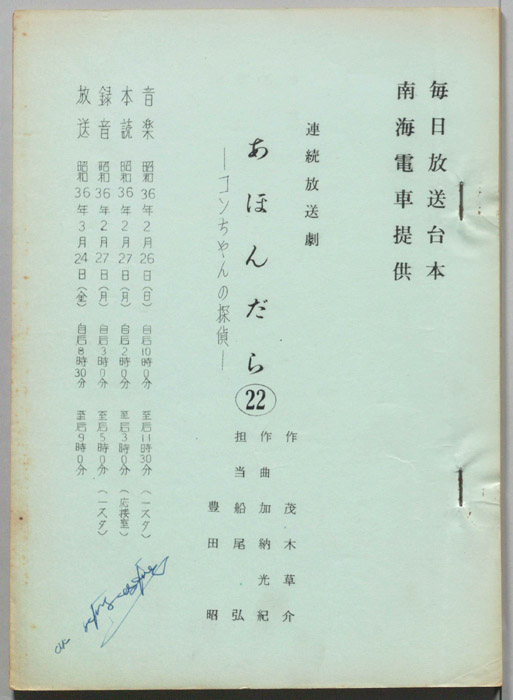 毎日放送台本
南海電車提供
連続放送劇
あほんだら㉒
―コンちやんの探偵―
作 茂木草介
作曲 加納光紀
担当 船尾弘
豊田昭
音楽 昭和36年2月26日(日) 自后10時0分 至后11時30分 (一スタ)
本読 昭和36年2月27日(月) 自后2時0分 至后3時0分 (応接室)
録音 昭和36年2月27日(月) 自后3時0分 至后5時0分 (一スタ)
放送 昭和36年3月24日(金) 自后8時30分 至后9時0分